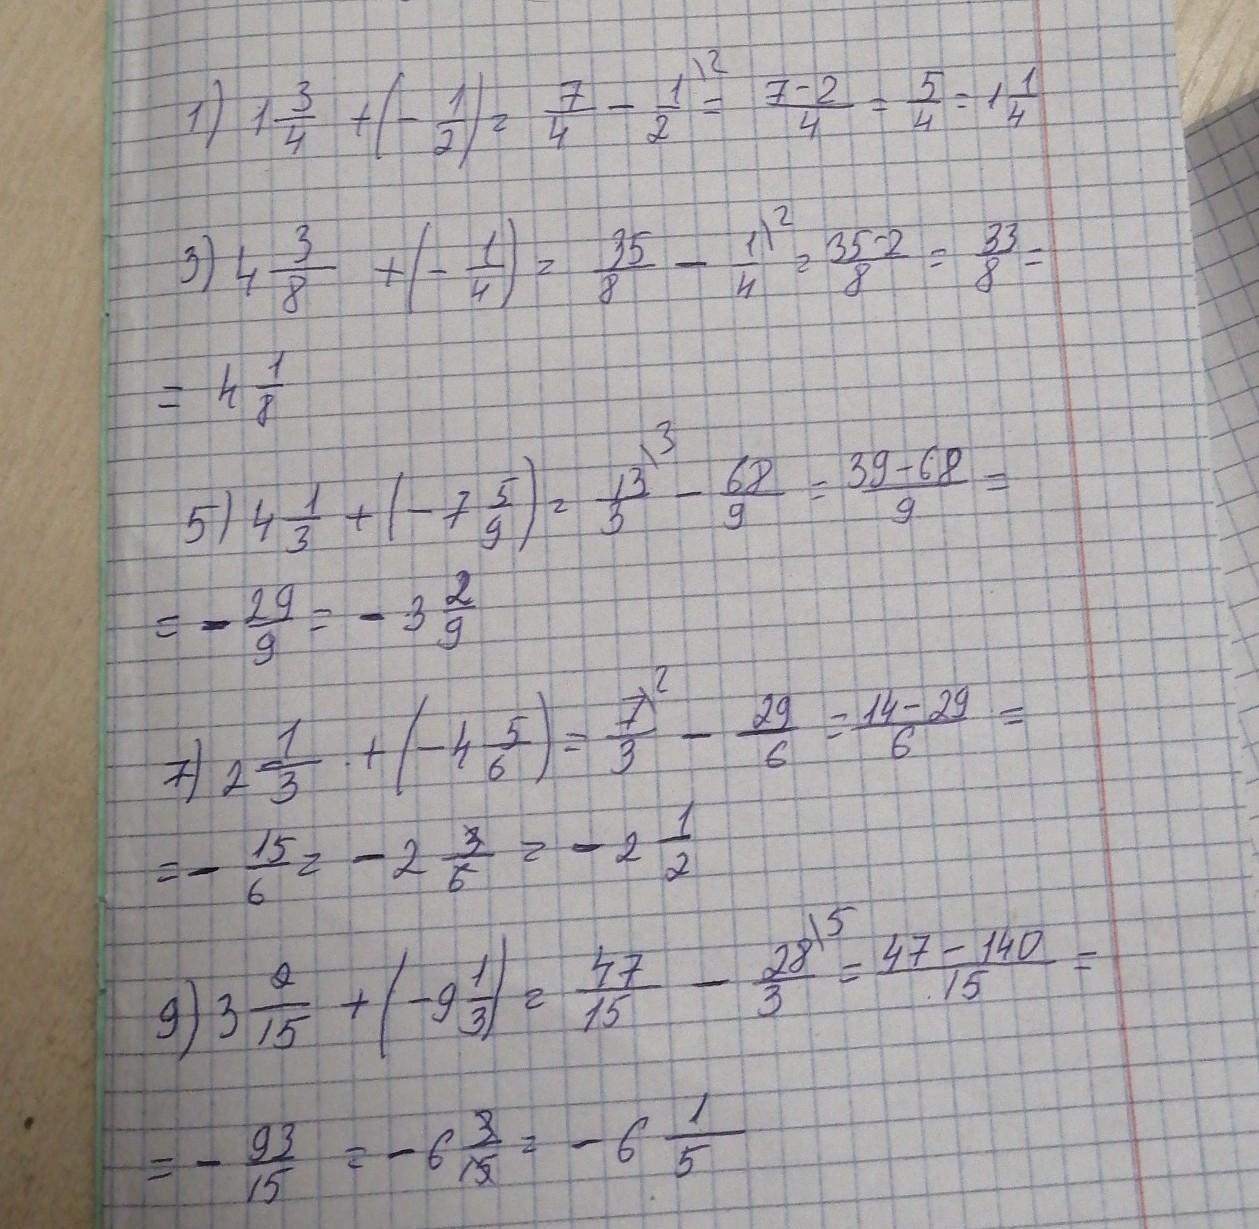 1) 1 3/4 + (- 1/2) = 7/4 - 1/2 \2 = 7-2/4 = 5/4 = 1 1/4
3) 4 3/8 + (- 1/4) = 35/8 - 1/4 \2 = 35-2/8 = 33/8 =
= 4 1/8
5) 4 1/3 + (-7 5/9) = 13/3 \3 - 68/9 = 39-68/9 =
= - 29/9 = - 3 2/9
7) 2 1/3 + (-4 5/6) = 7/3 \2 - 29/6 = 14-29/6 =
= - 15/6 = - 2 3/6 = - 2 1/2
9) 3 2/15 + (-9 1/3) = 47/15 - 28/3 \5 = 47-140/15 =
= - 93/15 = - 6 3/15 = - 6 1/5